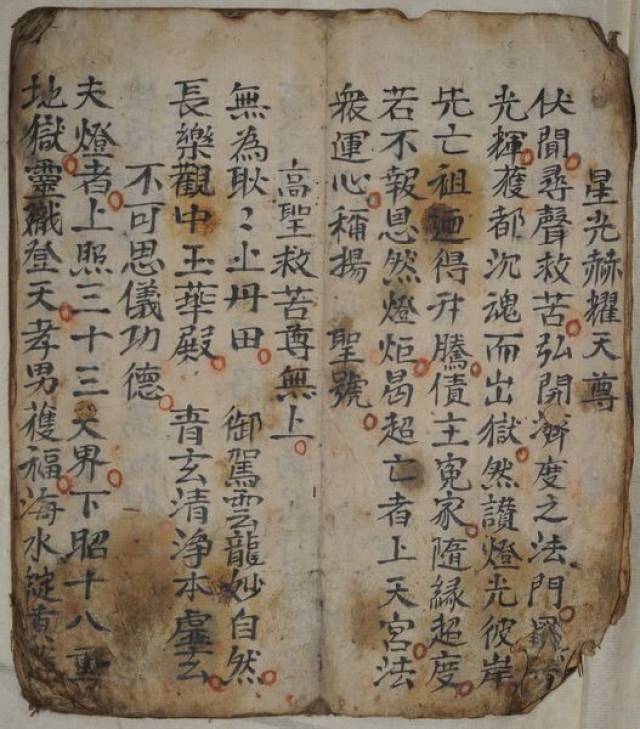 星光赫耀天尊
伏聞尋聲救苦弘開濟度之法門
光輝獲都沉魂而出獄然讚燈光彼岸
先亡祖廻得升騰債主寃家隨緣超度
若不報恩然燈炬曷超亡者上天宮法
衆運心稱揚 聖號
高聖救苦尊無上
無為耿〻上丹田 御駕雲龍妙自然
長樂觀中玉華殿 音玄清淨本虛玄
不可思儀功德
夫燈者上照三十三天界下昭十八重
地獄靈織登天孝男獲福海水綻黃